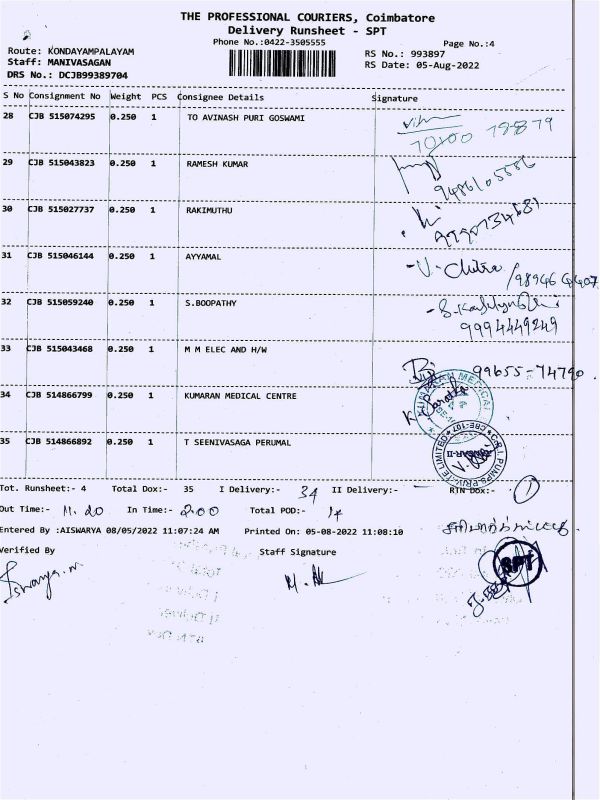 THE PROFESSIONAL COURIERS, Coimbatore
Delivery Runsheet - SPT
Phone No.:0422-3505555
Page No.:4
Route: KONDAYAMPALAYAM
RS No.: 993897
Staff: MANIVASAGAN
RS Date: 05-Aug-2022
DRS No.: DCJB99389704
S No Consignment No Weight PCS Consignee Details Signature
28 CJB 515074295 0.250 1 TO AVINASH PURI GOSWAMI
29 CJB 515043823 0.250 1 RAMESH KUMAR
30 CJB 515027737 0.250 1 RAKIMUTHU
31 CJB 515046144 0.250 1 AYYAMAL V. Chitra
32 CJB 515059240 0.250 1 S.BOOPATHY
9994449249
33 CJB 515043468 0.250 1 M M ELEC AND H/W 99655-74790
34 CJB 514866799 0.250 1 KUMARAN MEDICAL CENTRE
35 CJB 514866892 0.250 1 T SEENIVASAGA PERUMAL
Tot. Runsheet:- 4 Total Dox:- 35 I Delivery:- 34 II Delivery:- RTN Dox:- 1
Out Time:- 11.20 In Time:- 2.00 Total POD:-
Entered By :AISWARYA 08/05/2022 11:07:24 AM Printed On: 05-08-2022 11:08:10
Verified By Staff Signature
SPT